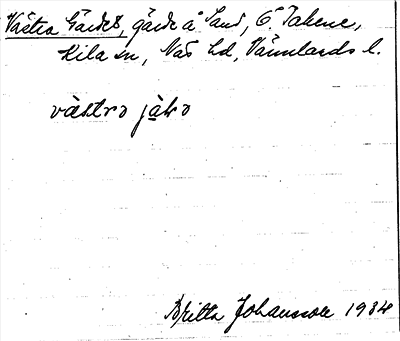 Västra Gärdet, gärde å Sand, Ö. Takene,
Kila sn, Näs hd, Värmlands l.
västrə jäꭋə
Britta Johansson 1934